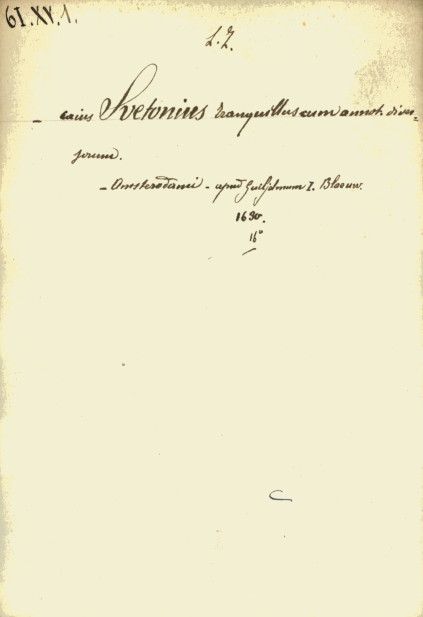 61.XV.1.
L. Z.
- caius Svetonius tranquillus cum annot. diver-
sorum.
- Amsterodami - apud Guiljelmum I. Blaeuw.
1630.
16°